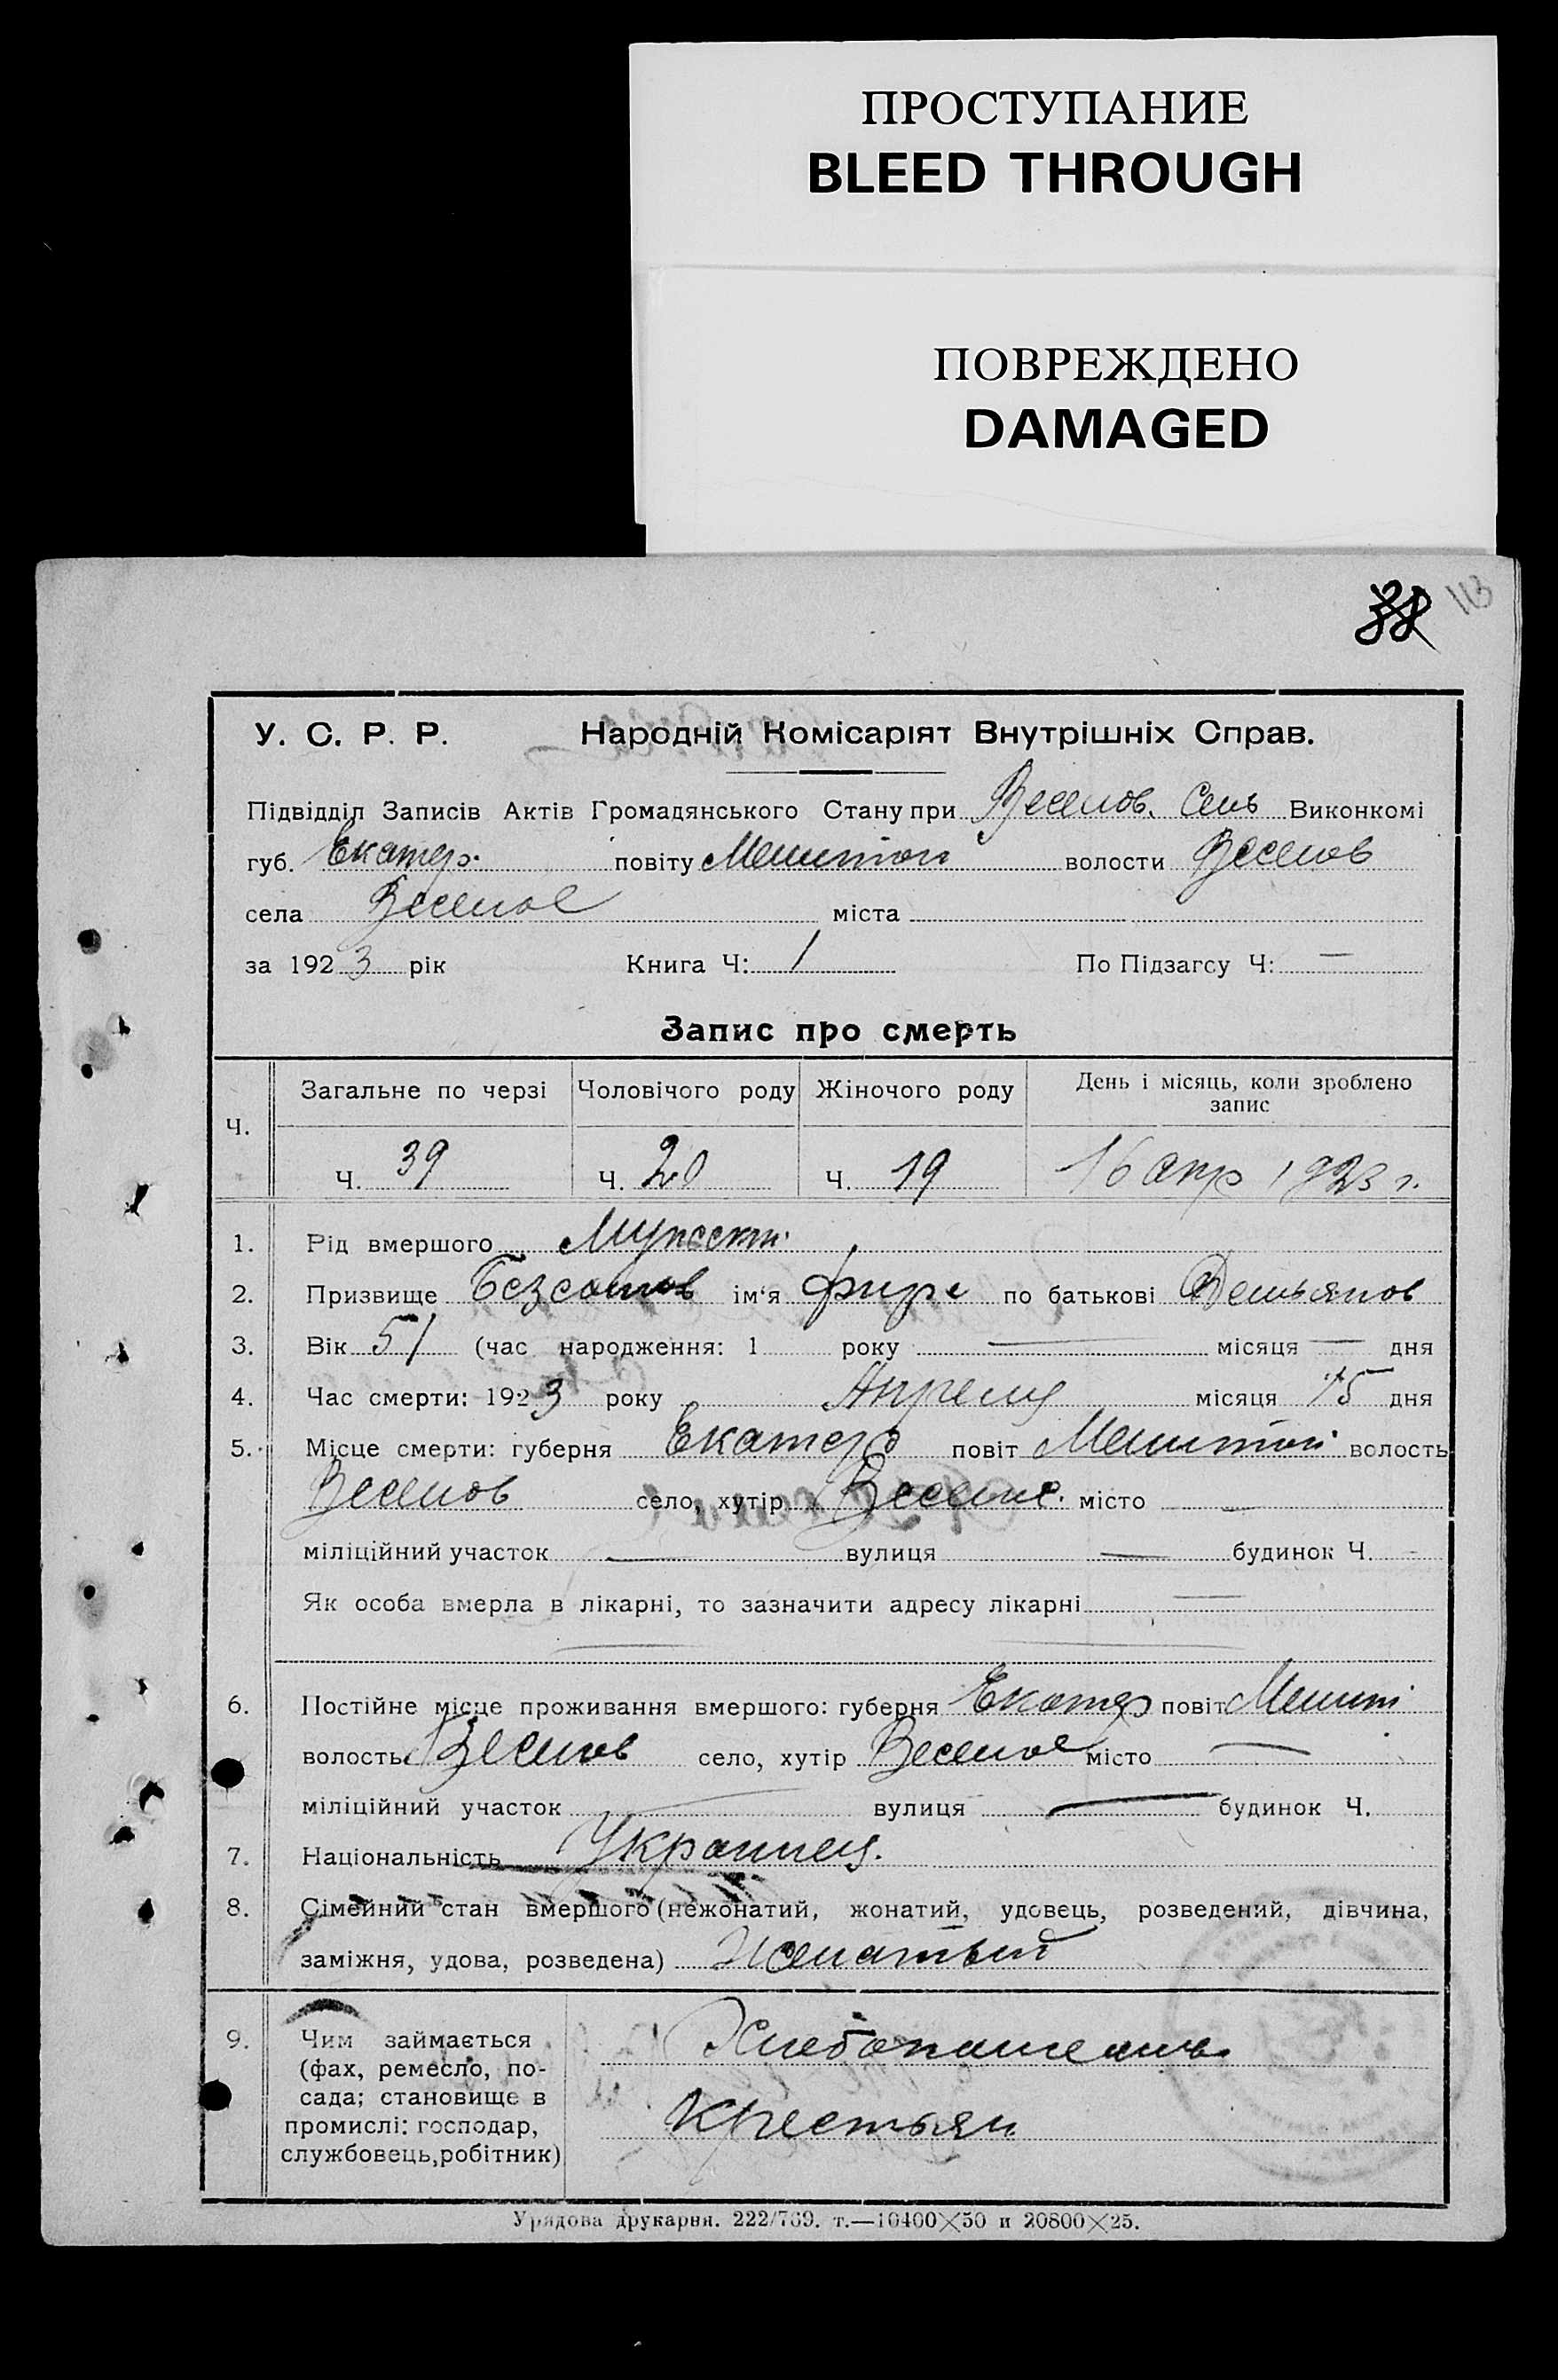 ПРОСТУПАНИЕ
BLEED THROUGH
ПОВРЕЖДЕНО
DAMAGED
38 113
У. С. Р. Р. Народній Комісаріят Внутрішніх Справ.
Підвідділ Записів Актів Громадянського Стану при Веселов. Сель Виконкомі
губ. Екатер. повіту Мелитоп волости Веселов
села Веселое міста
за 1923 рік Книга Ч: 1 По Підзагсу Ч: —
Запис про смерть
Ч. Загальне по черзі Чоловічого роду Жіночого роду День і місяць, коли зроблено запис
Ч. 39 Ч. 20 Ч. 19 16 апр 1923 г.
1. Рід вмершого Мужеск.
2. Призвище ім'я по батькові Демьянов
3. Вік 51 (час народження: 1 року — місяця — дня
4. Час смерти: 1923 року Апреля місяця 15 дня
5. Місце смерти: губерня Екатер повіт Мелитоп волость
Веселов село, хутір Веселое місто —
міліційний участок — вулиця — будинок Ч. -
Як особа вмерла в лікарні, то зазначити адресу лікарні —
6. Постійне місце проживання вмершого: губерня Екатер повіт Мелит
волость Веселов село, хутір Веселое місто —
міліційний участок — вулиця — будинок Ч.
7. Національність Украинец.
8. Сімейний стан вмершого (нежонатий, жонатий, удовець, розведений, дівчина,
заміжня, удова, розведена) Женатый
9. Чим займається Хлебопашець
(фах, ремесло, по-
сада; становище в Крестьян
промислі: господар,
службовець, робітник)
Урядова друкарня. 222/769. т.—10400×50 и 20800×25.